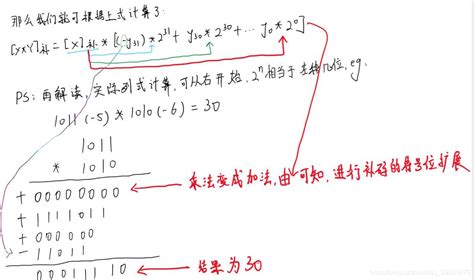 那么我们就可根据上式计算了:
[X*Y]补=[X]补*[(-y31)*2^31+y30*2^30+…y0*2^0]
PS:再解读,实际列式计算,可以右开始,2^n相当于左移几位,eg.
1011(-5)*1010(-6)=30
1011
* 1010
+00000000
乘法变成加法,由可知,进行补码的符号位扩展
+1111011
+000000
-11011
00011110
结果为30